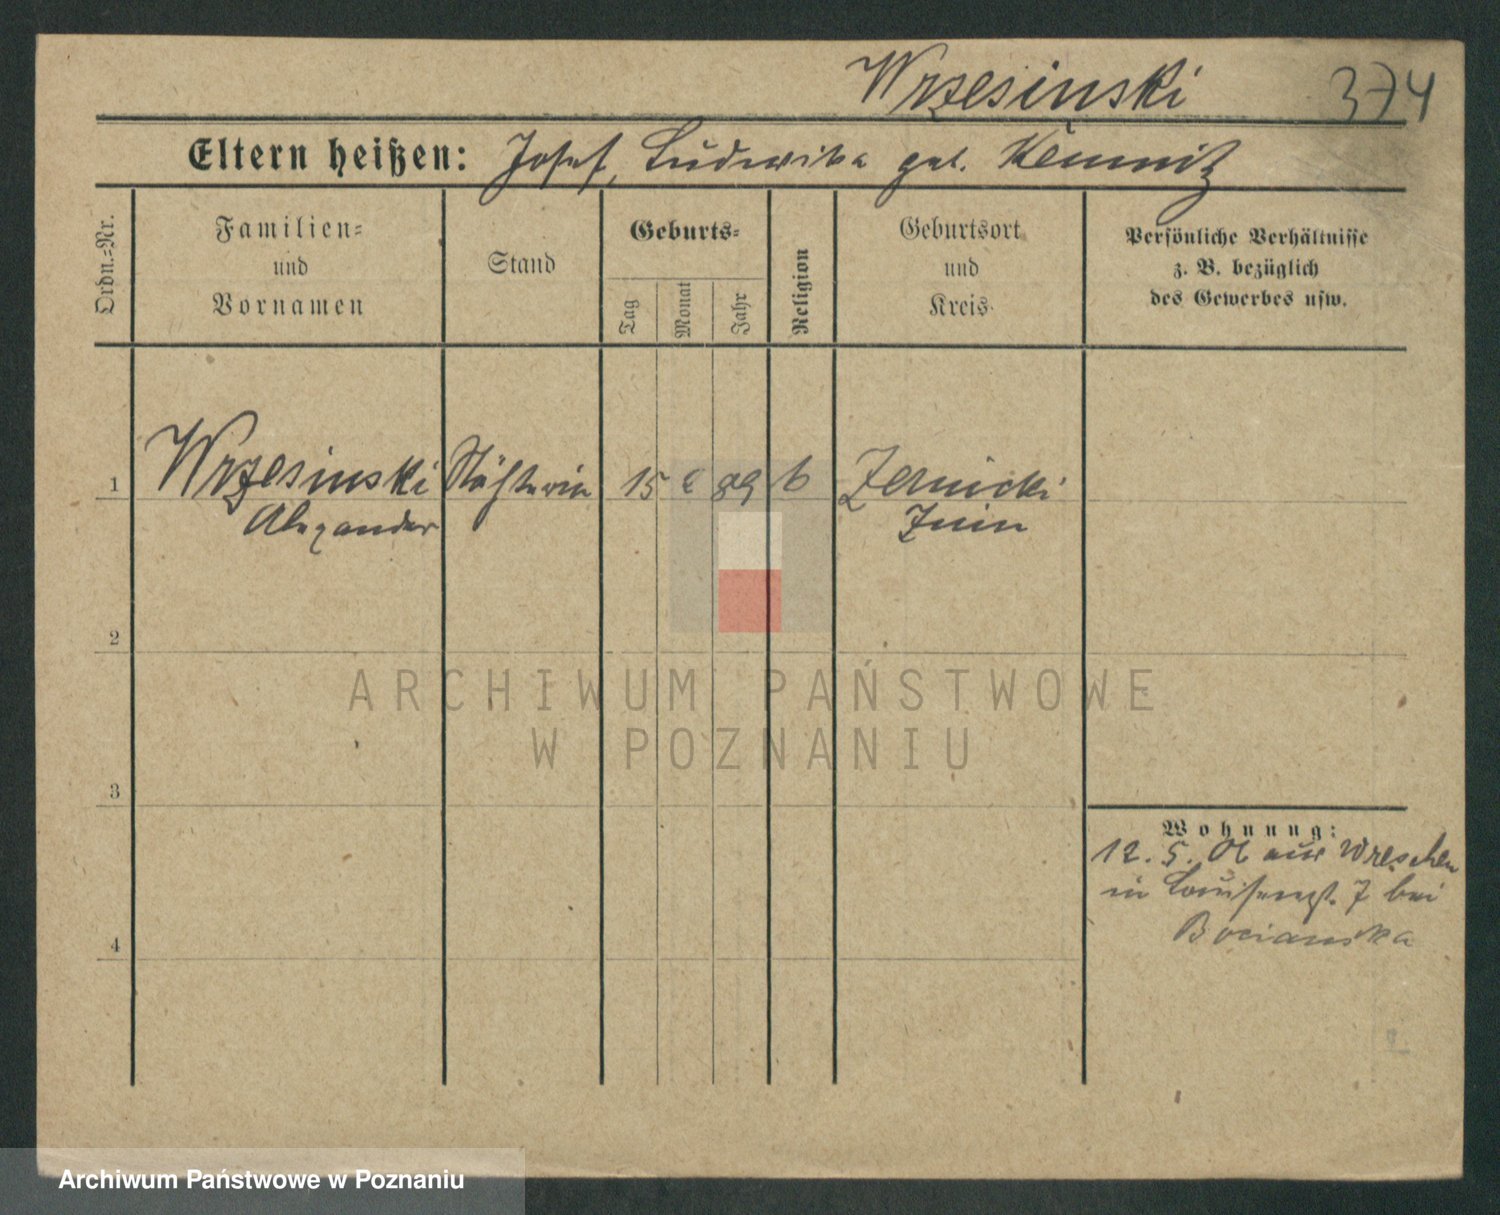 Wrzesinski 374
Eltern heißen: Josef, Ludwika geb. Kemnitz
Ordn.-Nr.
Familien-
und
Vornamen
Stand
Geburts-
Tag
Monat
Jahr
Religion
Geburtsort
und
Kreis
Persönliche Verhältnisse
z. B. bezüglich
des Gewerbes usw.
1 Wrzesinski 15 2 89 Zernicki
Alexander Znin
2
3
4
Wohnung:
12. 5. 06 aus Wreschen
in Louisenst. 7 bei
Bocianska
ARCHIWUM PAŃSTWOWE
W POZNANIU
Archiwum Państwowe w Poznaniu